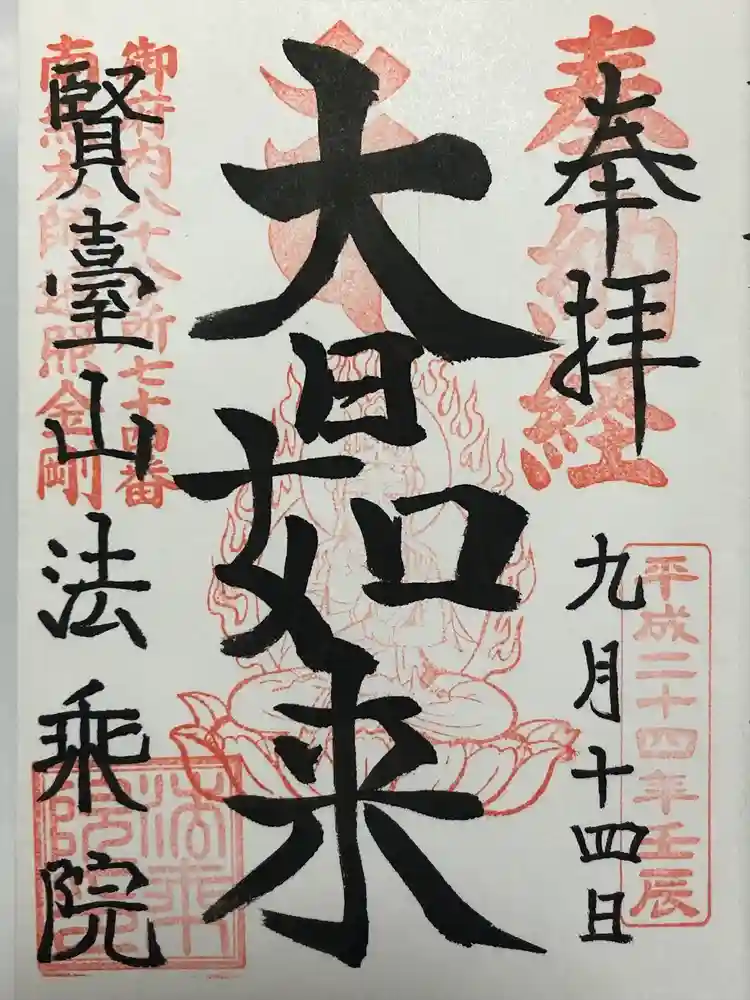 奉拝
奉納経
平成二十四年壬辰
九月十四日
大日如来
御府内八十八所七十四番
南無大師遍照金剛
賢臺山法乗院